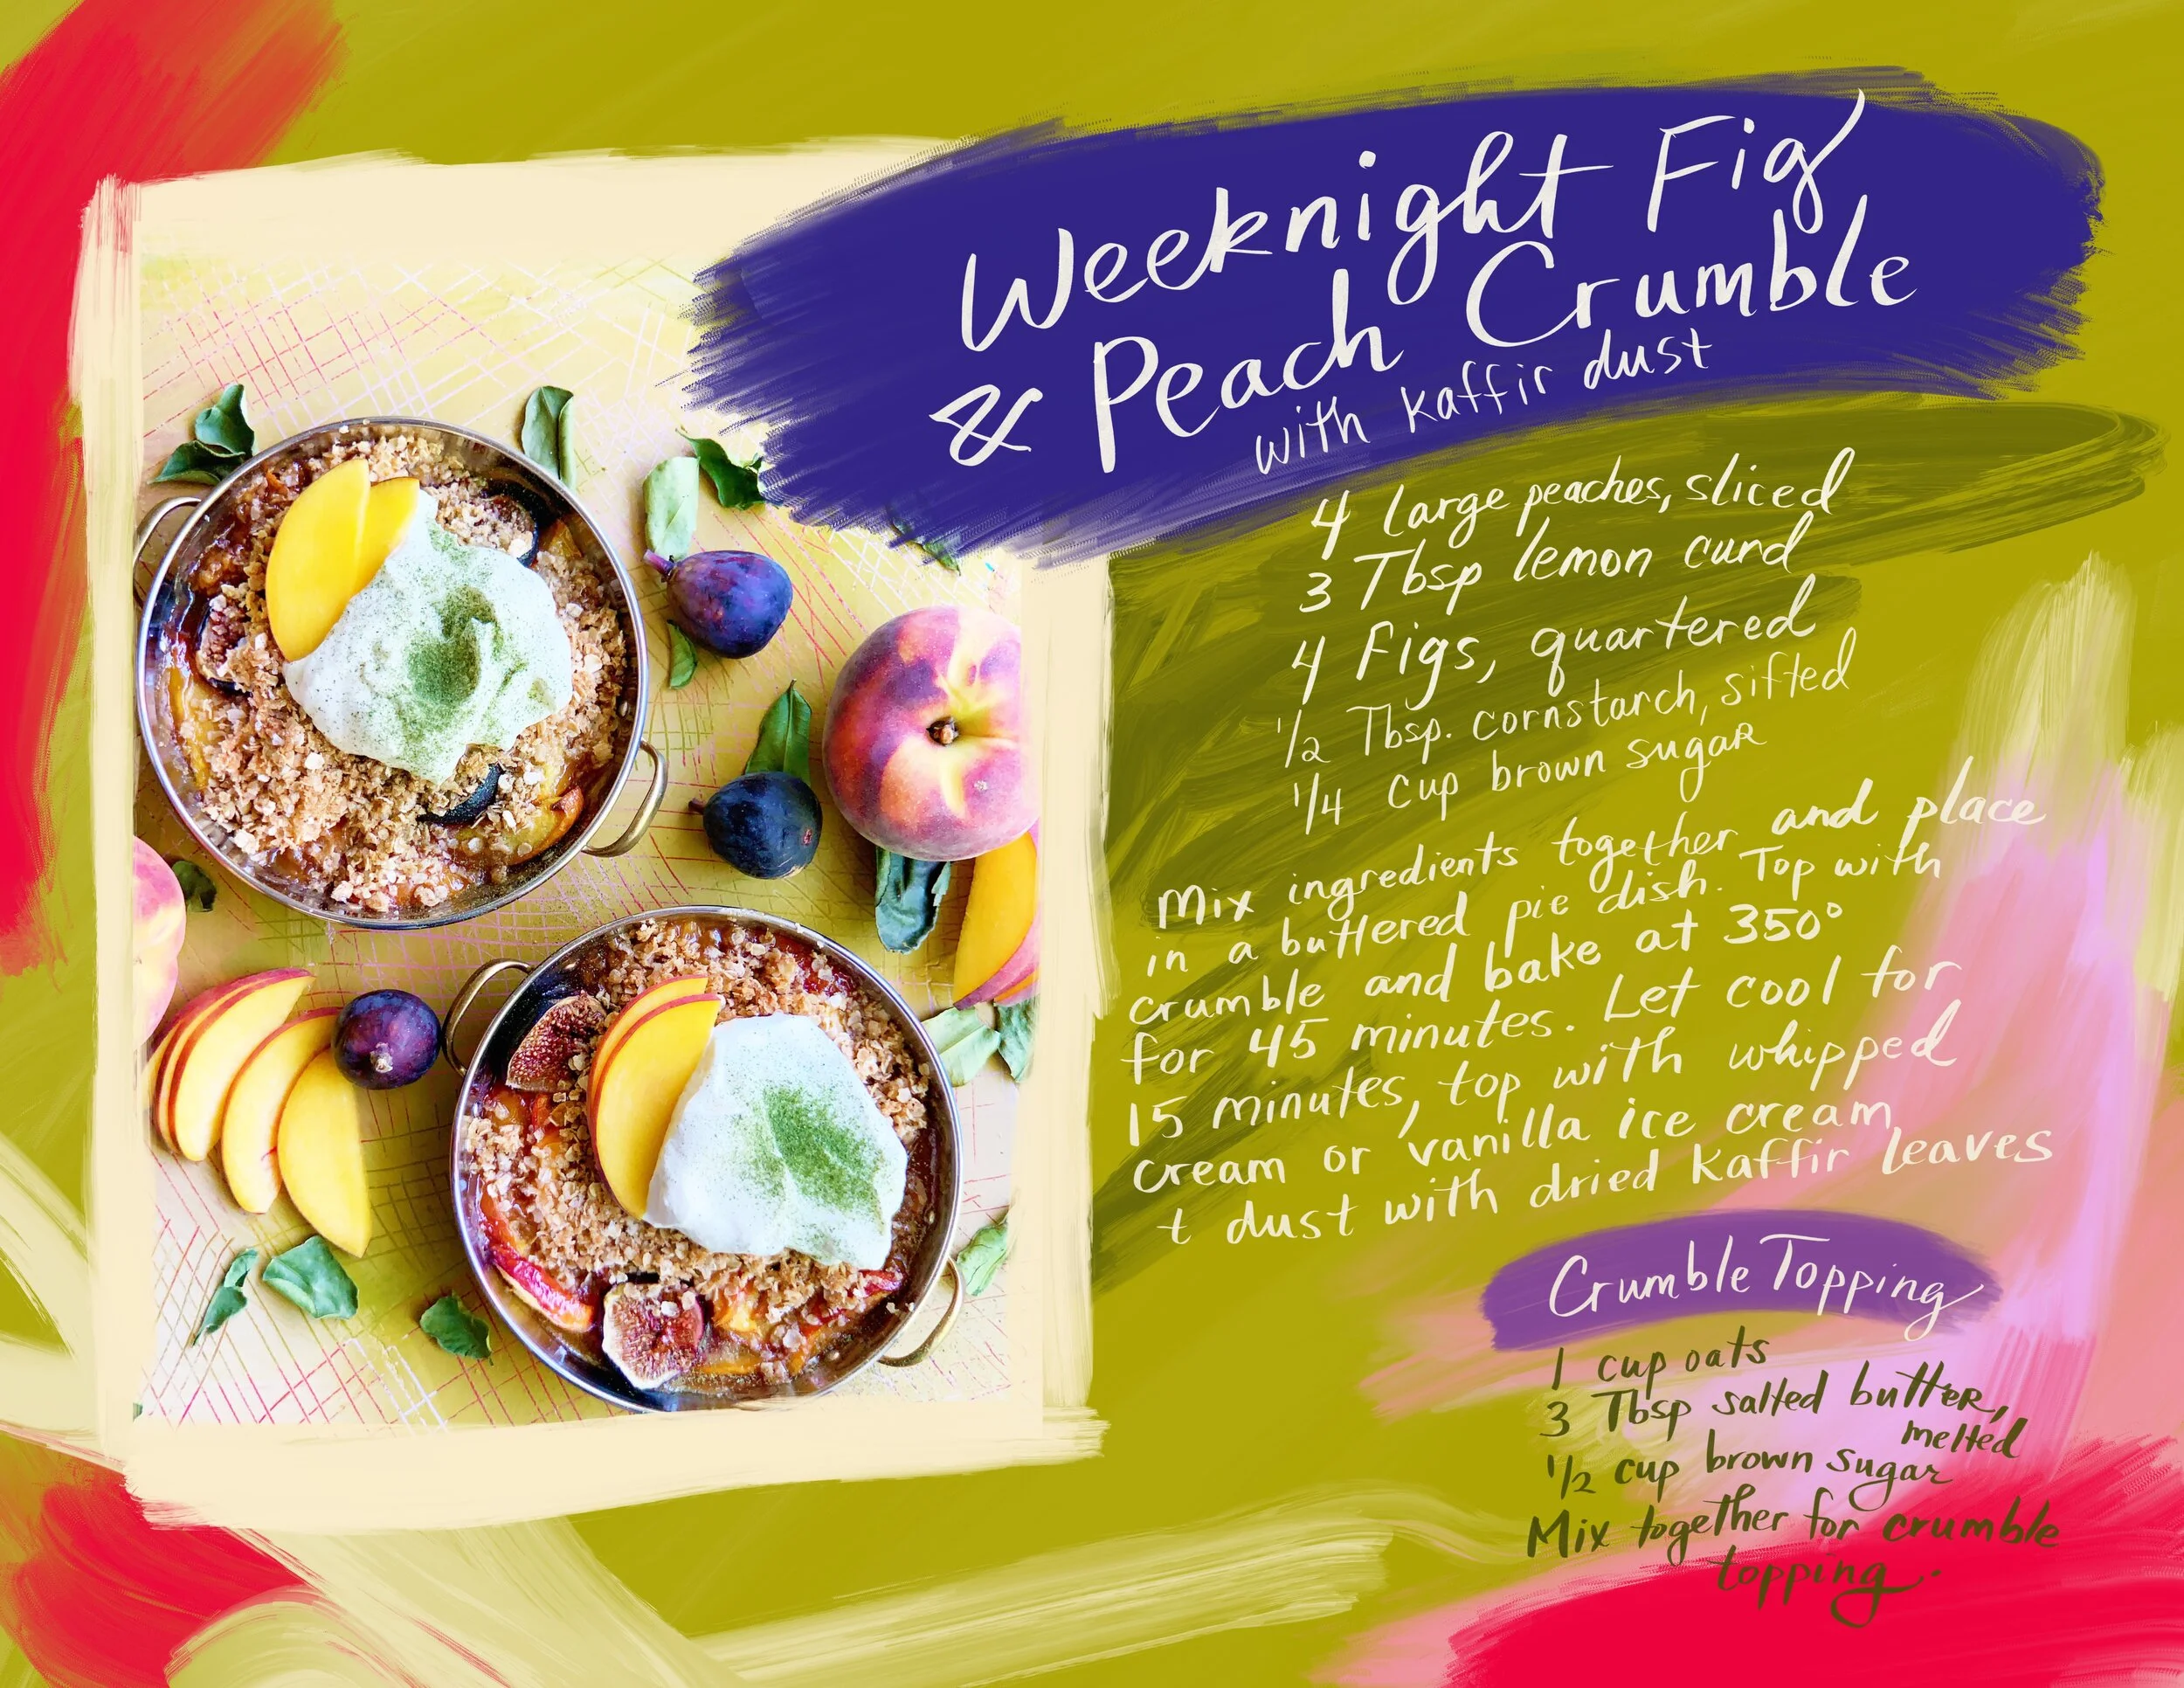 Weeknight Fig
& Peach Crumble
with kaffir dust
4 large peaches, sliced
3 Tbsp lemon curd
4 Figs, quartered
1/2 Tbsp. cornstarch, sifted
1/4 cup brown sugar
Mix ingredients together and place
in a buttered pie dish. Top with
crumble and bake at 350°
for 45 minutes. Let cool for
15 minutes, top with whipped
cream or vanilla ice cream
+ dust with dried kaffir leaves
Crumble Topping
1 cup oats
3 Tbsp salted butter,
melted
1/2 cup brown sugar
Mix together for crumble
topping.